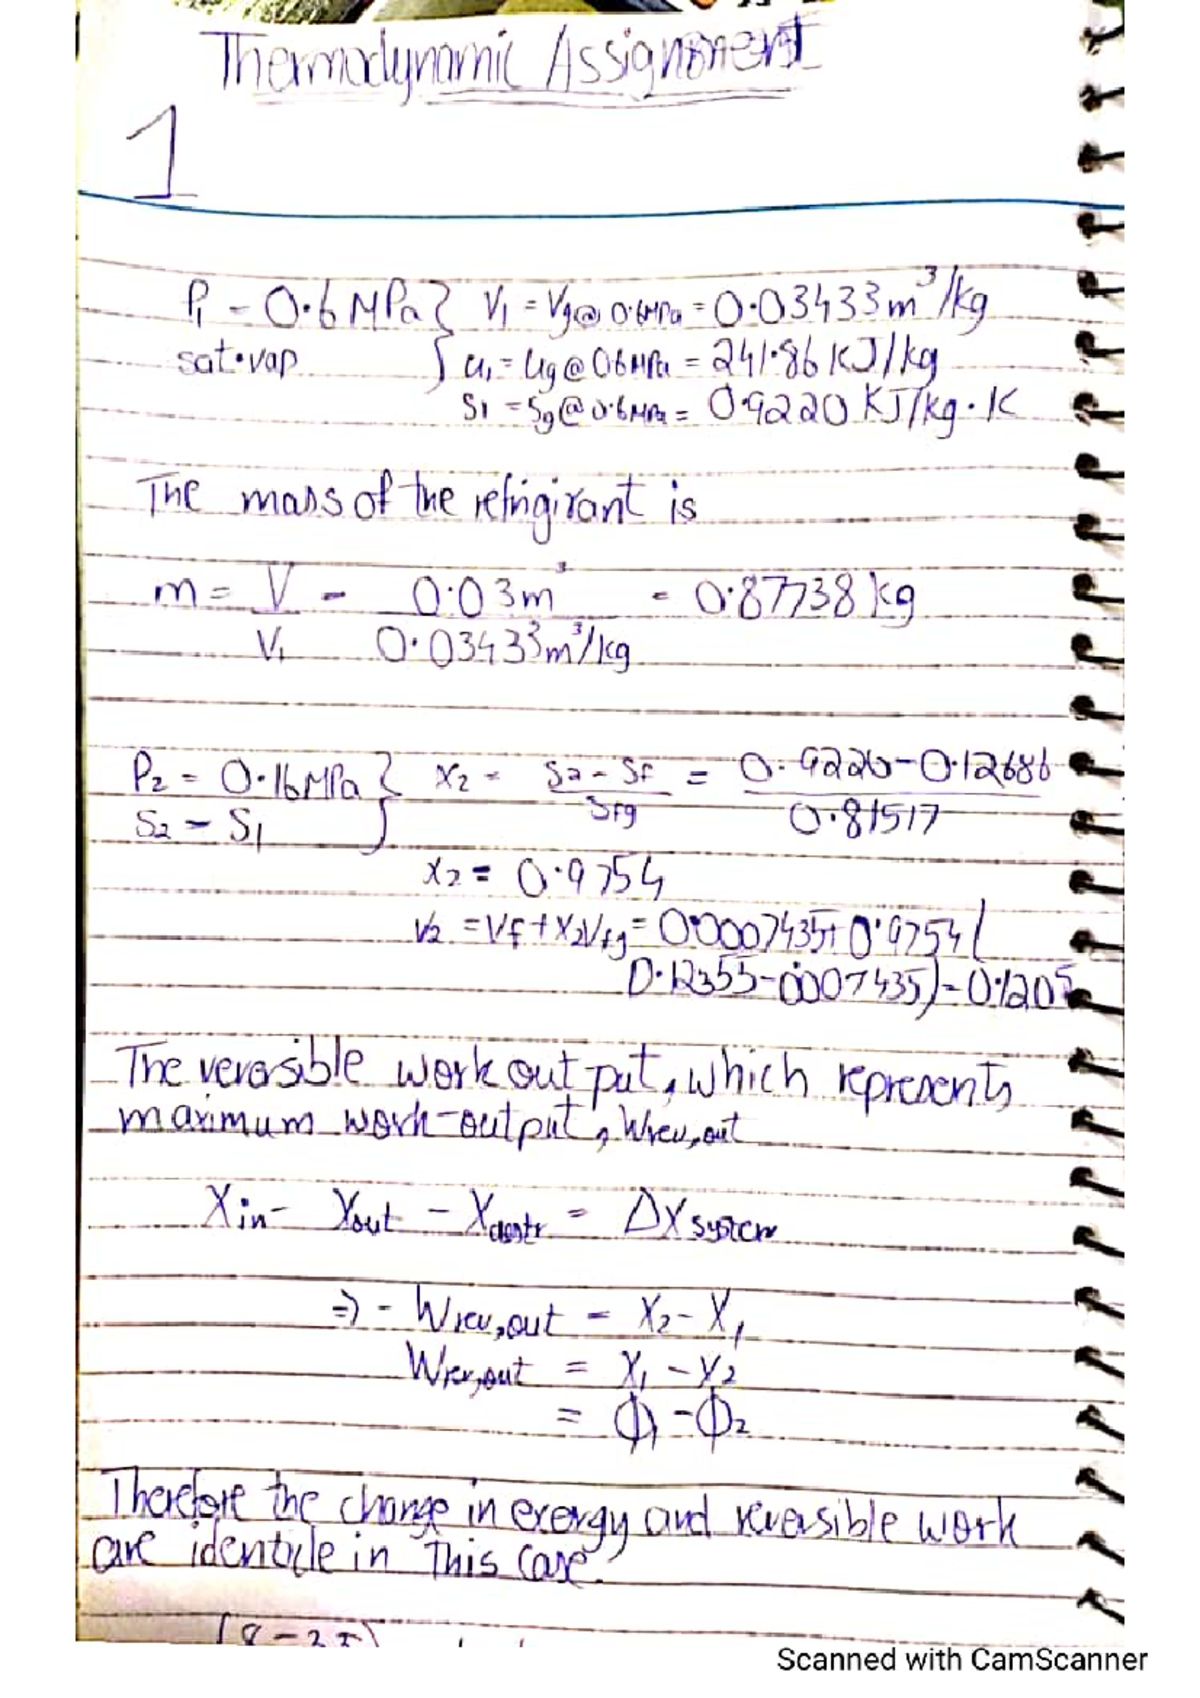 Thermodynamic Assignment
1
P₁ - 0.6 MPa } V₁ = Vg@ 0.6MPa = 0.03433 m³/kg
sat.vap } u₁ = ug@ 0.6MPa = 241.86 KJ/kg
S1 = Sg@ 0.6MPa = 0.9220 KJ/kg.K
The mass of the refrigirant is
m = V - 0.03m³ - 0.87738 kg
V₁ 0.03433m³/kg
P₂ = 0.16MPa } x₂ - S2 - Sf = 0.9220-0.12686
S₂ - S₁ } Sfg 0.81517
x₂ = 0.9754
V₂ = Vf + X₂Vfg = 0.0007435+ 0.9754(
0.12355-0007435)-0.1205
The verosible work out put, which represents
maximum work-output, Wrev,out
Xin- Xout - Xdestr = ΔXsystem
=> - Wrev,out - X₂- X₁
Wrev,out = X₁ - X₂
= ϕ₁ -ϕ₂
Therefore the change in exergy and reversible work
are identicle in This case.
Scanned with CamScanner